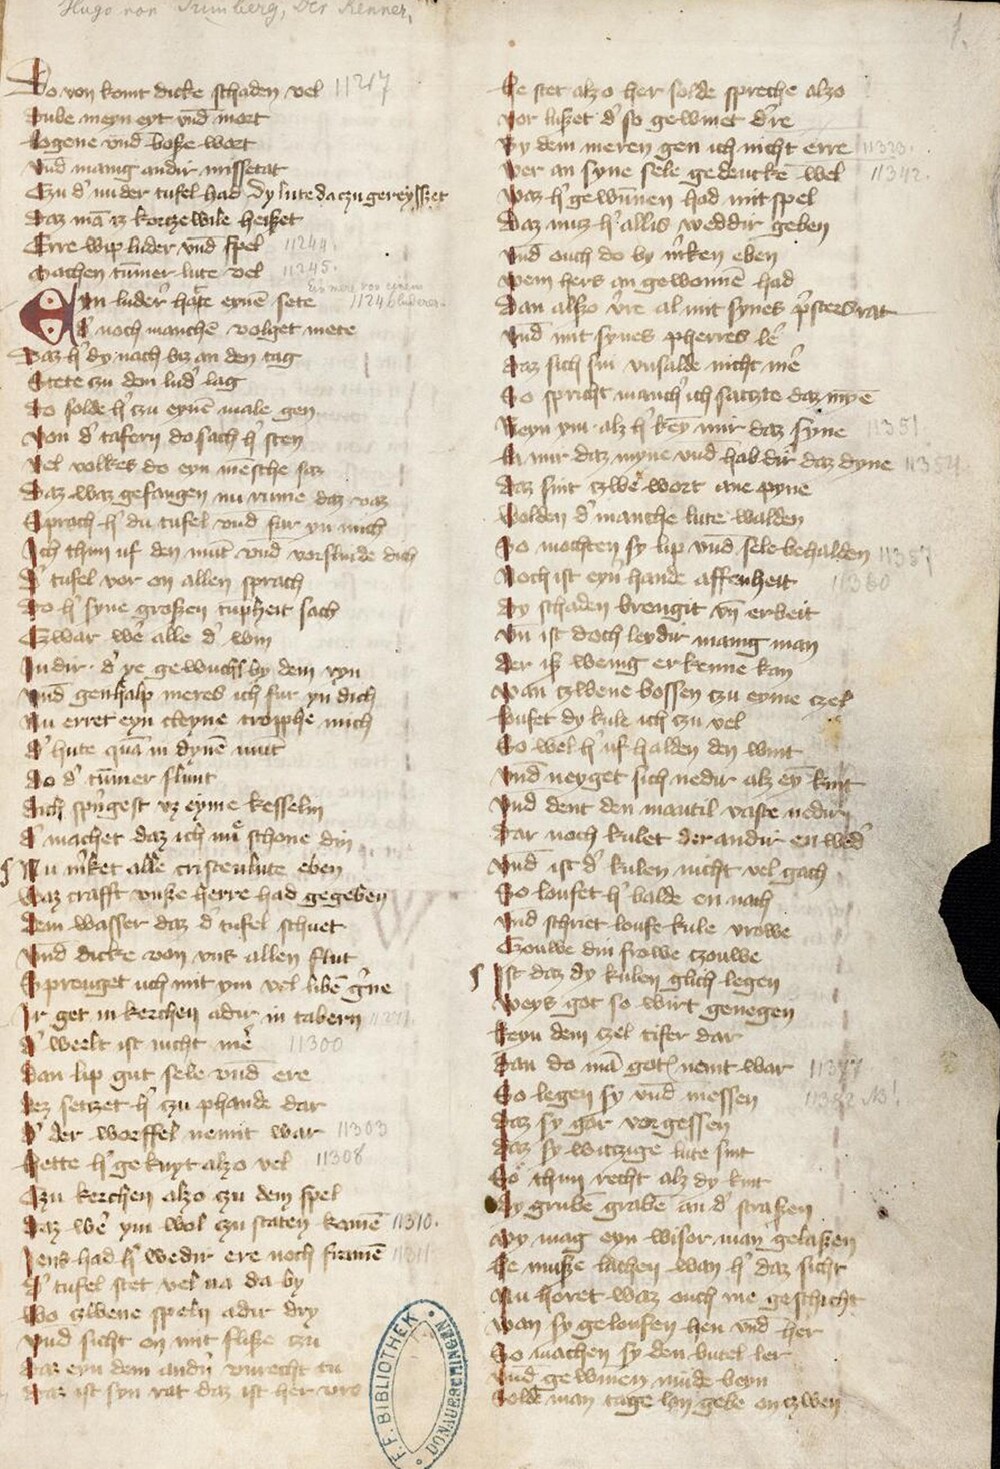 Hugo von Trimberg, Der Renner,
1.
Do von komt dicke schaden vel 11217
Hube meyn eyt vnd mort
Logene vnd bosze wort
Vnd manig andir missetat
Czu d' nu der tufel had dy lute da czu gereysszet
Daz mā iz kortzewile heiszet
Erre wip luder vnd spel 11244.
Machen tūmer lute vel 11245.
Ein luder' hatte eynē sete 11246
D' noch manchē volget mete
Daz h' dy nach biz an den tag
Stete czu dem lud' lag
Do solde h' czu eynē male gen
Von d' tafern do sach h' sten
Vel volkes do eyn mēsche saz
Daz waz gefangen nu rume daz vaz
Sprach h' du tufel vnd far yn mich
Ich thun uf den mūt vnd vorslinde dich
D' tufel vor on allen sprach
Do h' syne groszen tupheit sach
Czwar we' alle d' win
In dir d' ye gewuchs by dem ryn
Vnd genhalp meres ich fur yn dich
Nu erret eyn cleyne tropphe mich
D' hute quā in dynē mūt
Do d' tūmer slunt
Dich sp'ngest vz eyme kesselin
D' machet daz ich mu schone din
Nu m'ket alle cristenlute eben
Waz crafft vnsze herre had gegeben
Dem wasser daz d' tufel schuet
Vnd dicke von vns allen flut
Sprenget uch mit ym vel libē g'ne
Ir get in kerchen adir in tabern
D' werlt ist nicht mē 11300
Dan lip gut sele vnd ere
Dez setczet h' czu phande dar
D' der woeffel nemit war 11303
Hette h' geknyt alzo vel 11308
Czu kerchen alzo czu dem spel
Daz we' ym wol czu staten komē 11310.
Jens had h' wedir ere noch fromē 11311
D' tufel stet vel na da by
Wo czwene speln adir dry
Vnd sicht on mit flisze czu
Daz eyn dem and'n vnrecht tu
Daz ist syn rat daz ist her vro
He stet alzo her solde spreche alzo
Vor luszet d' so gewinet d're
By dem meren gen ich nicht erre 11333
Wer an syne sele gedencke wel 11342.
Waz h' gewūnen had mit spel
Daz muz h' allis weddir geben
Vnd ouch do by m'ken eben
Wem hers an gewonnē had
Dan alszo v're al mit synes p'sters rat
Vnd mit synes pherres le'
Daz sich sin vnsalde nicht me'
So spricht manch' ich saczte daz myē
Keyn ym alz h' key mir daz syne 11351
La mir daz myne vnd hab dir daz dyne 11354
Daz sint czwē wort ane pyne
Wolden d' manche lute walden
So mochten sy lip vnd sele behalden 11357
Noch ist eyn hande affenheit 11360
Dy schaden brengit vn erbeit
Vn ist doch leydir manig man
Der isz wenig erkenne kan
Wan czwene bossen czu eyme czel
Loufet dy kule ich czu vel
So wel h' uf halden den wint
Vnd neyget sich nedir alz ey kint
Vnd dent den mantil vaste nedir
Dar noch kulet der andir en wed'
Vnd ist d' kulen nicht vel gach
So loufet h' balde en nach
Vnd schriet loufe kule vrowe
Czouwe din frowe czouwe
Ist daz dy kulen glich legen
Weys got so wirt genegen
Keyn dem czel tifer dar
Dan do mā gotz nemt war 11377
So legen sy vnd messen 11382
Daz sy gar vorgessen
Daz sy witczige lute sint
So thun recht alz dy kint
Dy grubē grabē an d' straszen
Wy mag eyn wiser man gelaszen
He musze lachen wan h' daz sicht
Nu horet waz ouch me geschicht
Wan sy geloufen hen vnd her
So machen sy den butel ler
Vnd gewinen mude beyn
Solde man tage lon gebe on czwen
F. F. BIBLIOTHEK
DONAUESCHINGEN